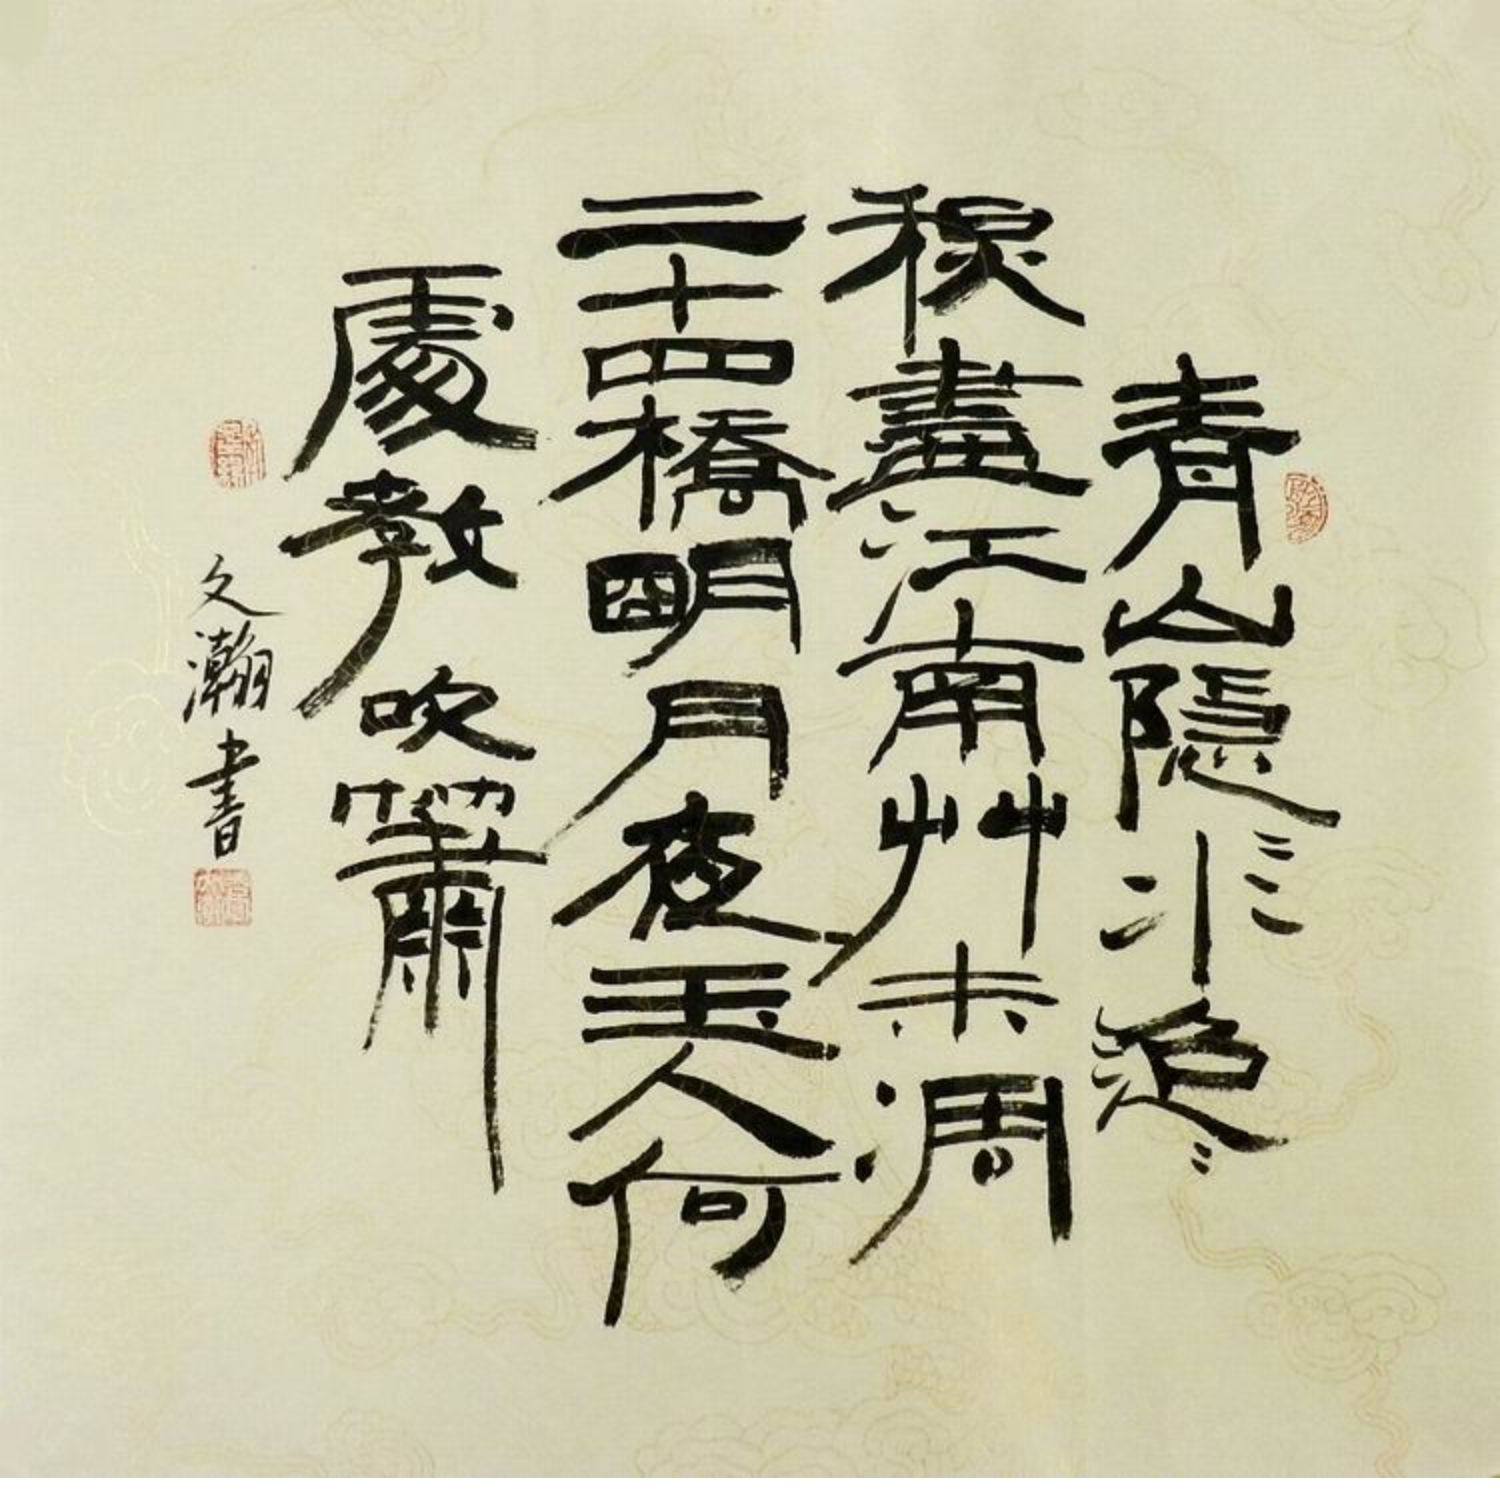 青山隱〻水迢〻
秋盡江南艸未凋
二十四橋明月夜玉人何
處教吹簫
文瀚書